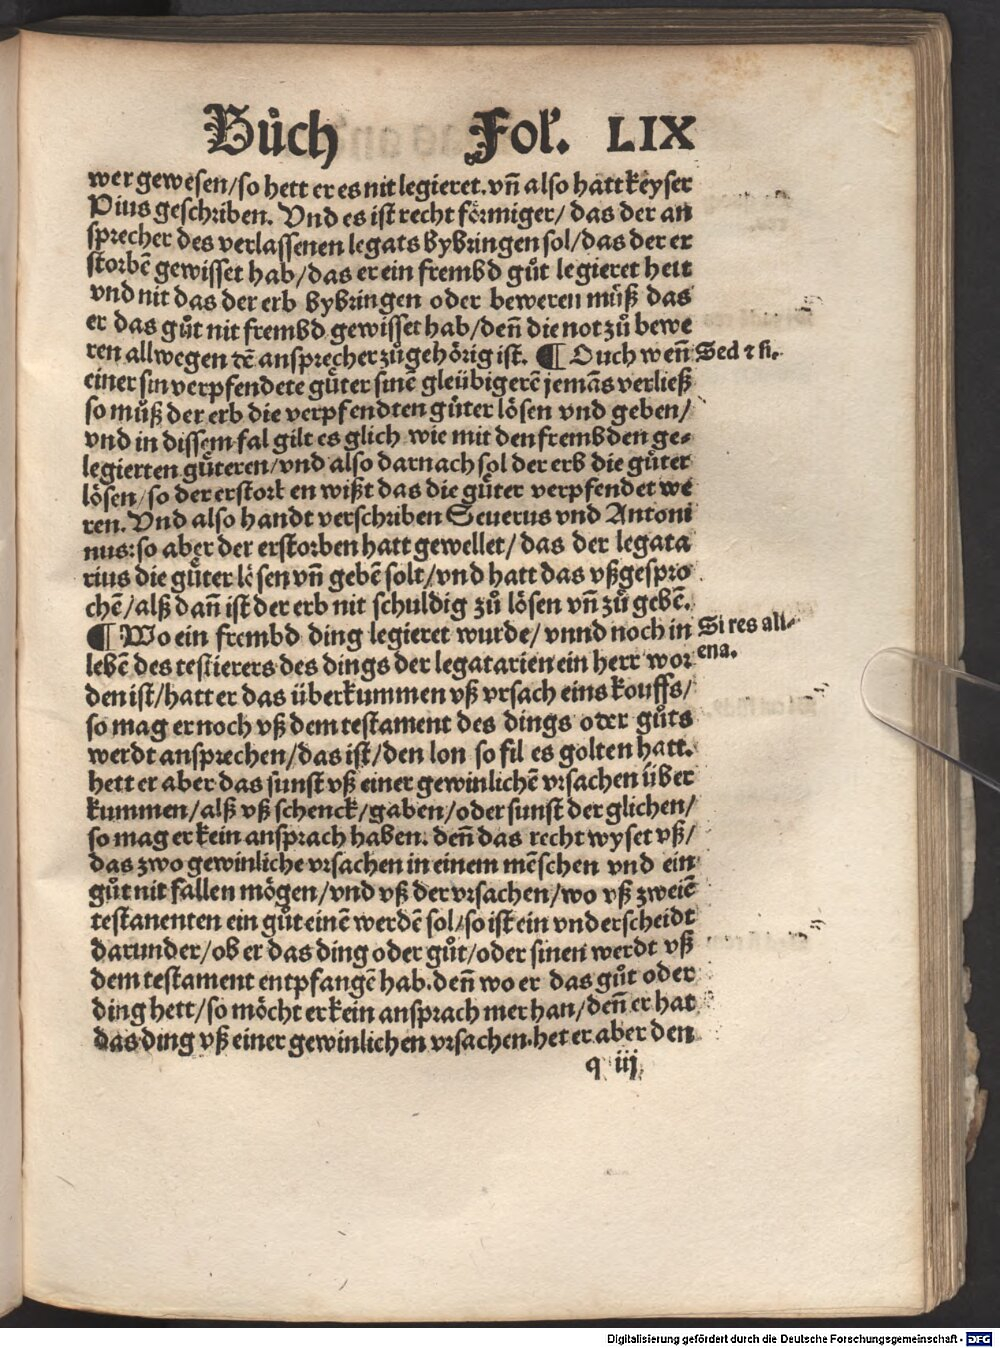 Bůch Fol'. LIX
wer gewesen/so hett er es nit legieret. vn̄ also hatt keyser
Pius geschriben. Vnd es ist recht förmiger/ das der an
sprecher des verlassenen legats bybringen sol/das der er
storbē gewisset hab/das er ein frembd gůt legieret hett
vnd nit das der erb bybringen oder beweren můß das
er das gůt nit frembd gewisset hab/den̄ die not zů bewe
ren allwegen dē ansprecher zůgehörig ist. ¶ Ouch wen̄ Sed ⁊ si.
einer sin verpfendete gůter sinē gleübigerē jemās verließ
so můß der erb die verpfendten gůter lösen vnd geben/
vnd in dissem fal gilt es glich wie mit den frembden ge⸗
legierten gůteren/vnd also darnach sol der erb die gůter
lösen/so der erstorben wißt das die gůter verpfendet we
ren. Vnd also handt verschriben Seuerus vnd Antoni
nus: so aber der erstorben hatt gewellet/ das der legata
rius die gůter lösen vn̄ gebē solt/vnd hatt das vßgespro
chē/alß dan̄ ist der erb nit schuldig zů lösen vn̄ zů gebē.
¶ Wo ein frembd ding legieret wurde/ vnnd noch in Si res ali⸗
lebē des testierers des dings der legatarien ein herr wor ena.
den ist/hatt er das überkummen vß vrsach eins kouffs/
so mag er noch vß dem testament des dings oder gůts
werdt ansprechen/das ist/den lon so fil es golten hatt.
hett er aber das sunst vß einer gewinlichē vrsachen über
kummen/alß vß schenck/gaben/oder sunst der glichen/
so mag er kein ansprach haben. den̄ das recht wyset vß/
das zwo gewinliche vrsachen in einem mēschen vnd ein
gůt nit fallen mögen/vnd vß der vrsachen/wo vß zweiē
testanenten ein gůt einē werdē sol/so ist ein vnderscheidt
darunder/ob er das ding oder gůt/oder sinen werdt vß
dem testament entpfangē hab. den̄ wo er das gůt oder
ding hett/so möcht er kein ansprach mer han/den̄ er hat
das ding vß einer gewinlichen vrsachen. het er aber den
q iij
Digitalisierung gefördert durch die Deutsche Forschungsgemeinschaft - DFG